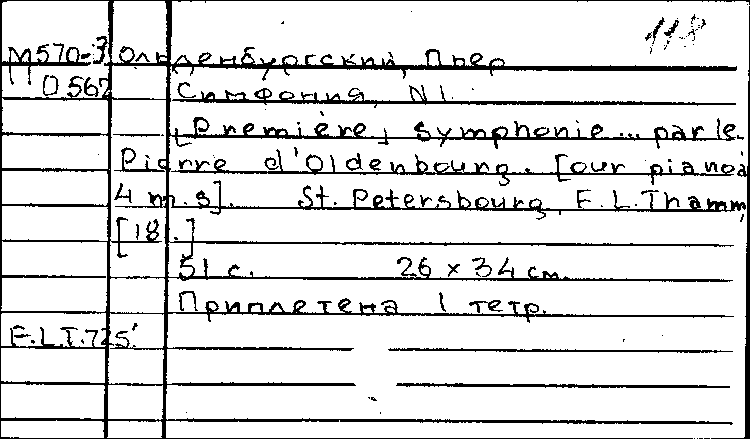 118
М570-3 Ольденбургский, Пьер
О 562 Симфония, N1.
[Première] symphonie... par le
Pierre d'Oldenbourg. [our piano à
4 m.s]. St. Petersbourg, F.L.Thamm,
[18 .]
51 с. 26 x 34 см.
Приплетена 1 тетр.
F.L.T.725.